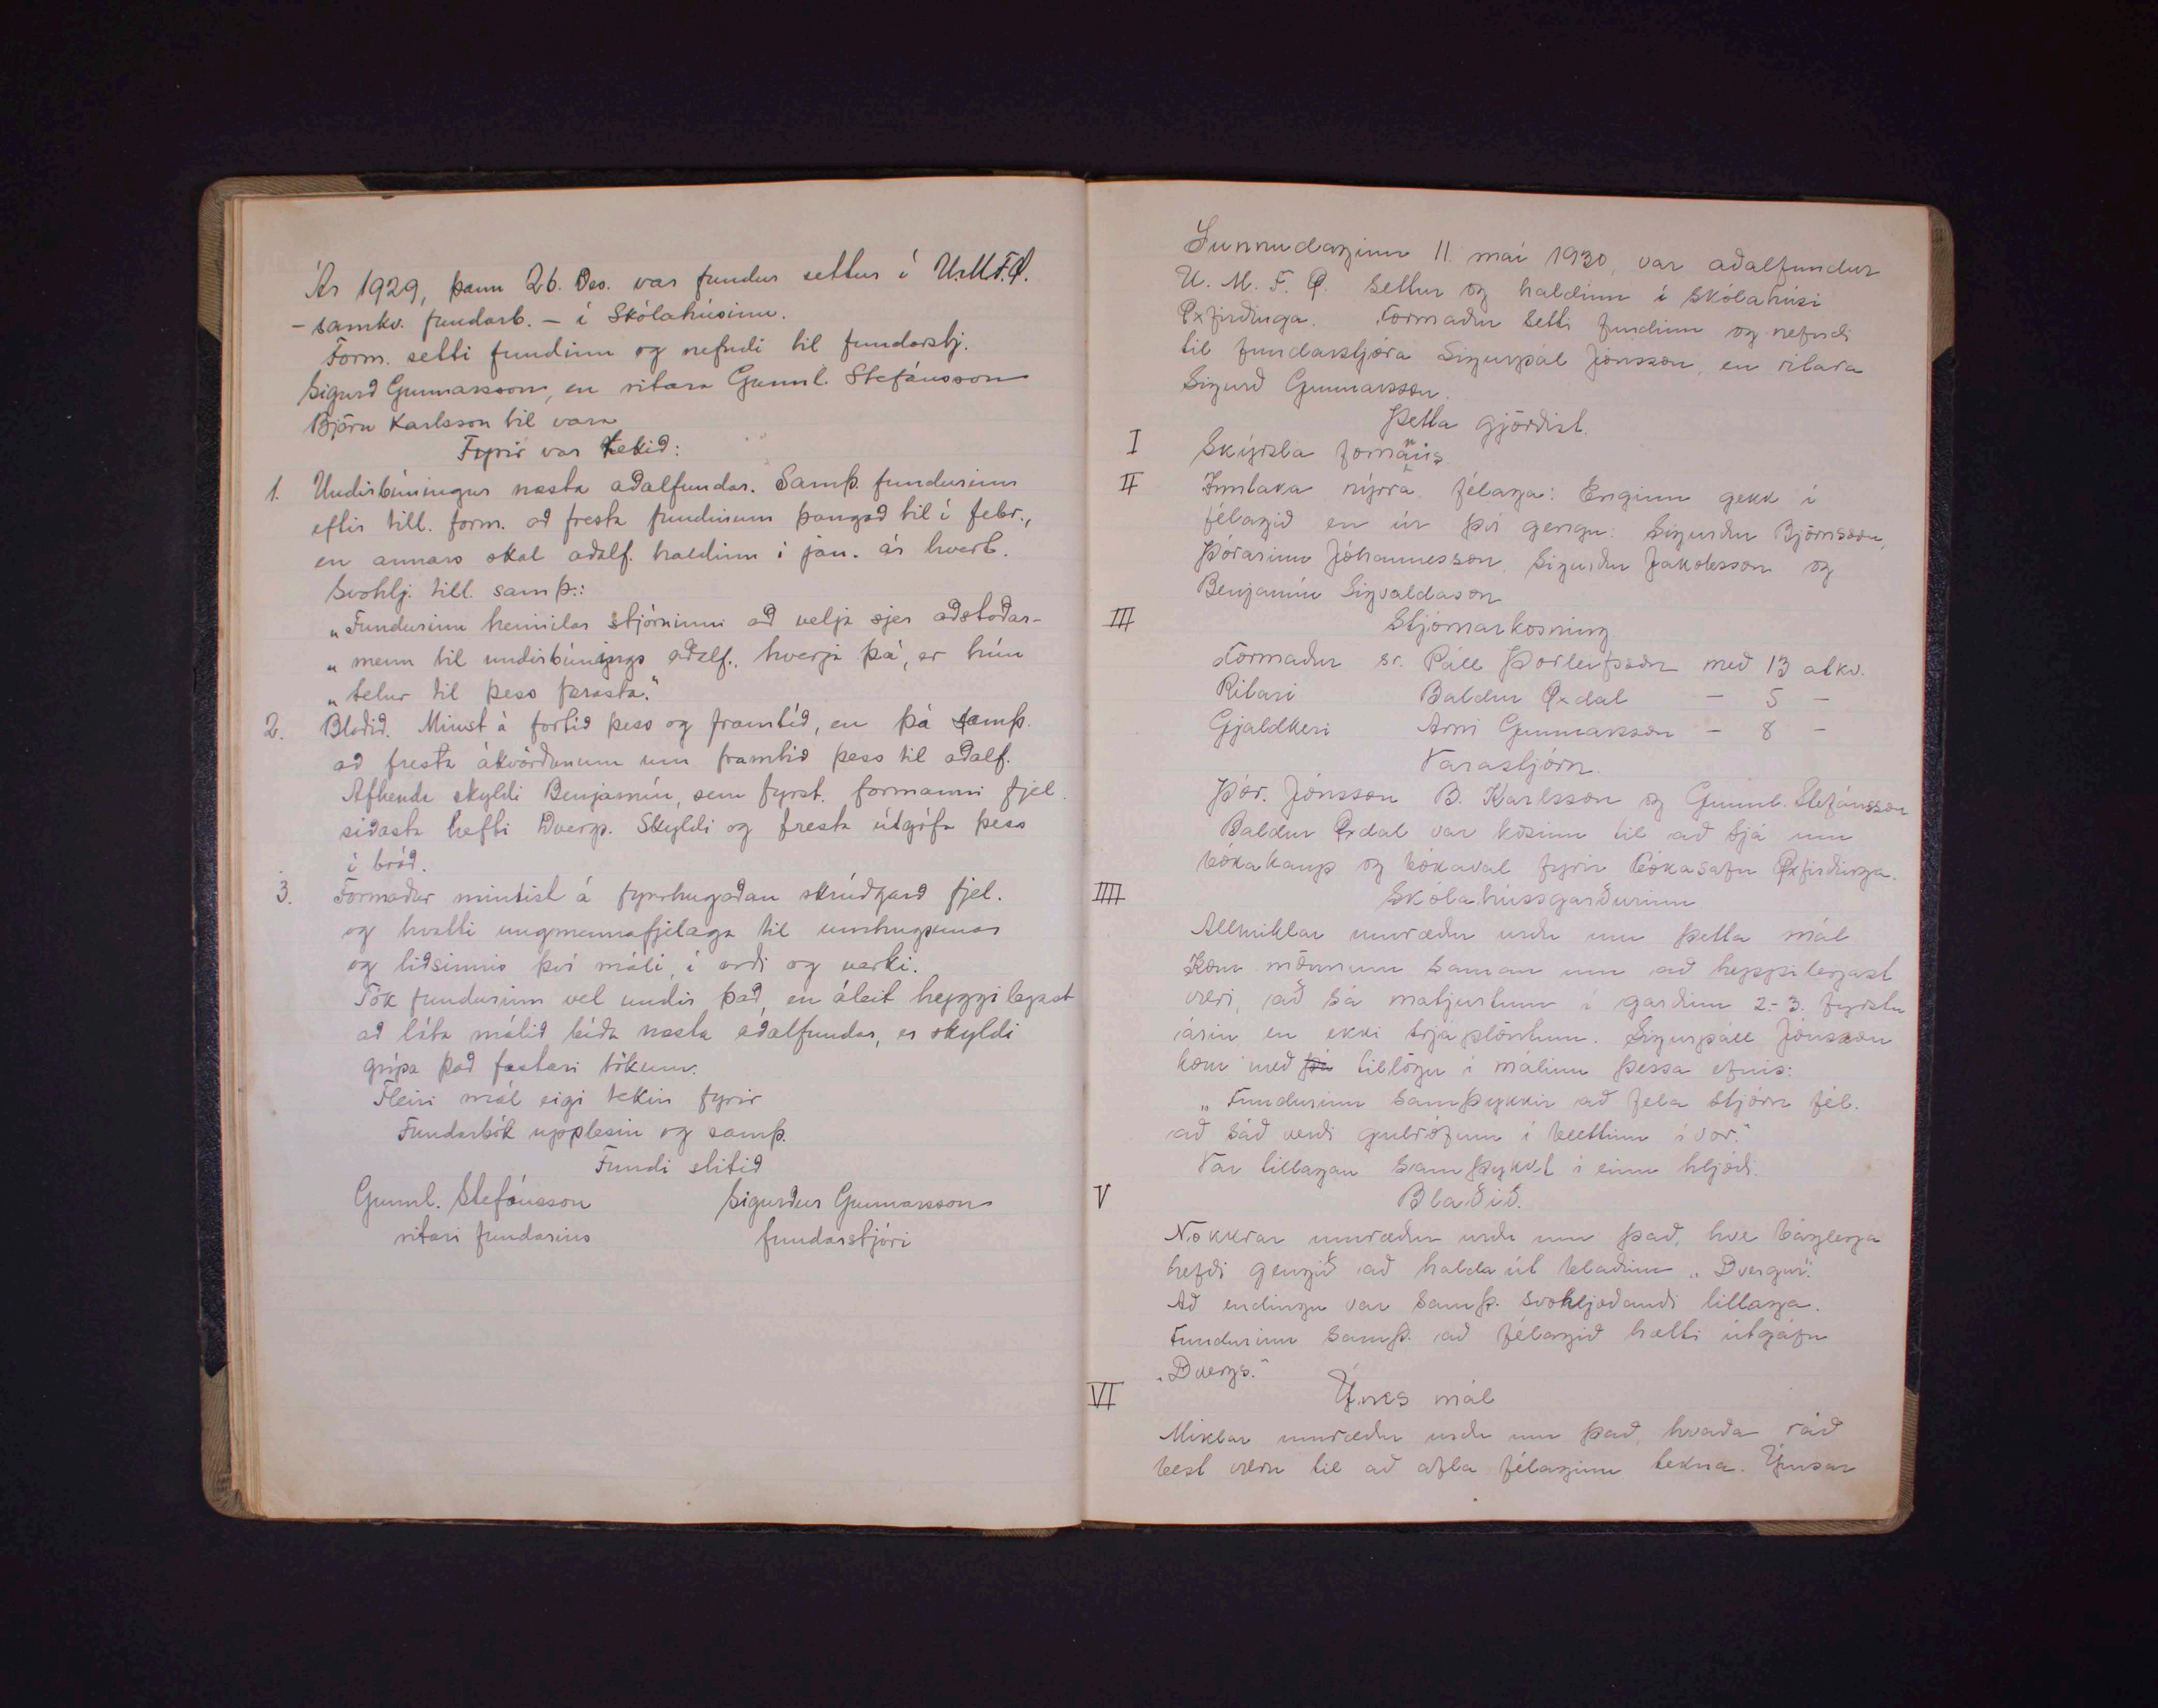 Ár 1929, þann 26. Des. var fundur settur í U.M.F.Ø.
- samkv. fundarb. - í Skólahúsinu.
Form. setti fundinn og nefndi til fundarstj.
Sigurð Gunnarsson, en ritara Gunnl. Stefánsson
Björn Karlsson til vara
Fyrir var tekið:
1. Undirbúningur næsta aðalfundar. Samþ. fundurinn
eftir till. form. að fresta fundinum þangað til í febr.,
en annars skal aðalf. haldinn í jan. ár hvert.
Svohlj. till. samþ.:
„Fundurinn heimilar stjórninni að velja sjer aðstoðar-
„menn til undirbúnings aðalf., hverja þá, er hún
„telur til þess færasta."
2. Blaðið. Minst á fortíð þess og framtíð, en þá samþ.
að fresta ákvörðunum um framtíð þess til aðalf.
Afhenda skyldi Benjamín, sem fyrst. formanni fjel.
síðasta hefti Dvergs. Skyldi og fresta útgáfu þess
í bráð.
3. Formaður mintist á fyrirhugaðan skrúðgarð fjel.
og hvatti ungmennafjelaga til umhugsunar
og liðsinnis því máli, í orði og verki.
Tók fundurinn vel undir það, en áleit heppilegast
að láta málið bíða næsta aðalfundar, er skyldi
grípa það fastari tökum.
Fleiri mál eigi tekin fyrir
Fundarbók upplesin og samþ.
Fundi slitið
Gunnl. Stefánsson Sigurður Gunnarsson
ritari fundarins fundarstjóri
Sunnudaginn 11. maí 1930, var aðalfundur
U. M. F. Ø. settur og haldinn í skólahúsi
Øxfirðinga. Formaður setti fundinn og nefndi
til fundarstjóra Sigurpál Jónsson, en ritara
Sigurð Gunnarsson.
Þetta gjörðist.
I Skýrsla formanns
II Inntaka nýrra félaga: Enginn gekk í
félagið en úr því gengu: Sigurður Björnsson,
Þórarinn Jóhannesson, Sigurður Jakobsson og
Benjamín Sigvaldason
III Stjórnarkosning
Formaður sr. Páll Þorleifsson með 13 atkv.
Ritari Baldur Øxdal - 5 -
Gjaldkeri Arni Gunnarsson - 8 -
Varastjórn.
Þór. Jónsson B. Karlsson og Gunnl. Stefánsson
Baldur Øxdal var kosinn til að sjá um
bókakaup og bókaval fyrir Bókasafn Øxfirðinga.
IIII Skólahússgarðurinn
Allmiklar umræður urðu um þetta mál
Kom mönnum saman um að heppilegast
væri, að sá matjurtum í garðinn 2-3 fyrstu
árin, en ekki trjáplöntum. Sigurpáll Jónsson
kom með þá tillögu í málinu þessa efnis:
„Fundurinn samþykkir að fela stjórn fél.
að sáð verði gulrófum í blettinn í vor."
Var tillagan samþykkt í einu hljóði.
V Blaðið.
Nokkrar umræður urðu um það, hve báglega
hefði gengið að halda út blaðinu „Dvergur".
Að endingu var samþ. svohljóðandi tillaga.
Fundurinn samþ. að félagið hætti útgáfu
„Dvergs."
VI Ýmis mál
Miklar umræður urðu um það, hvaða ráð
best væru til að afla félaginu tekna. Ýmsar